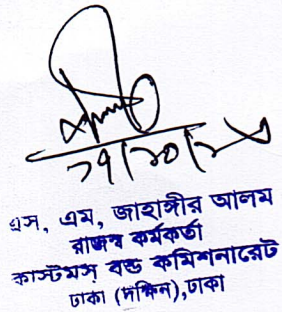 ২৭/১০/২৫
এস, এম, জাহাঙ্গীর আলম
রাজস্ব কর্মকর্তা
কাস্টমস্ বন্ড কমিশনারেট
ঢাকা (দক্ষিন),ঢাকা